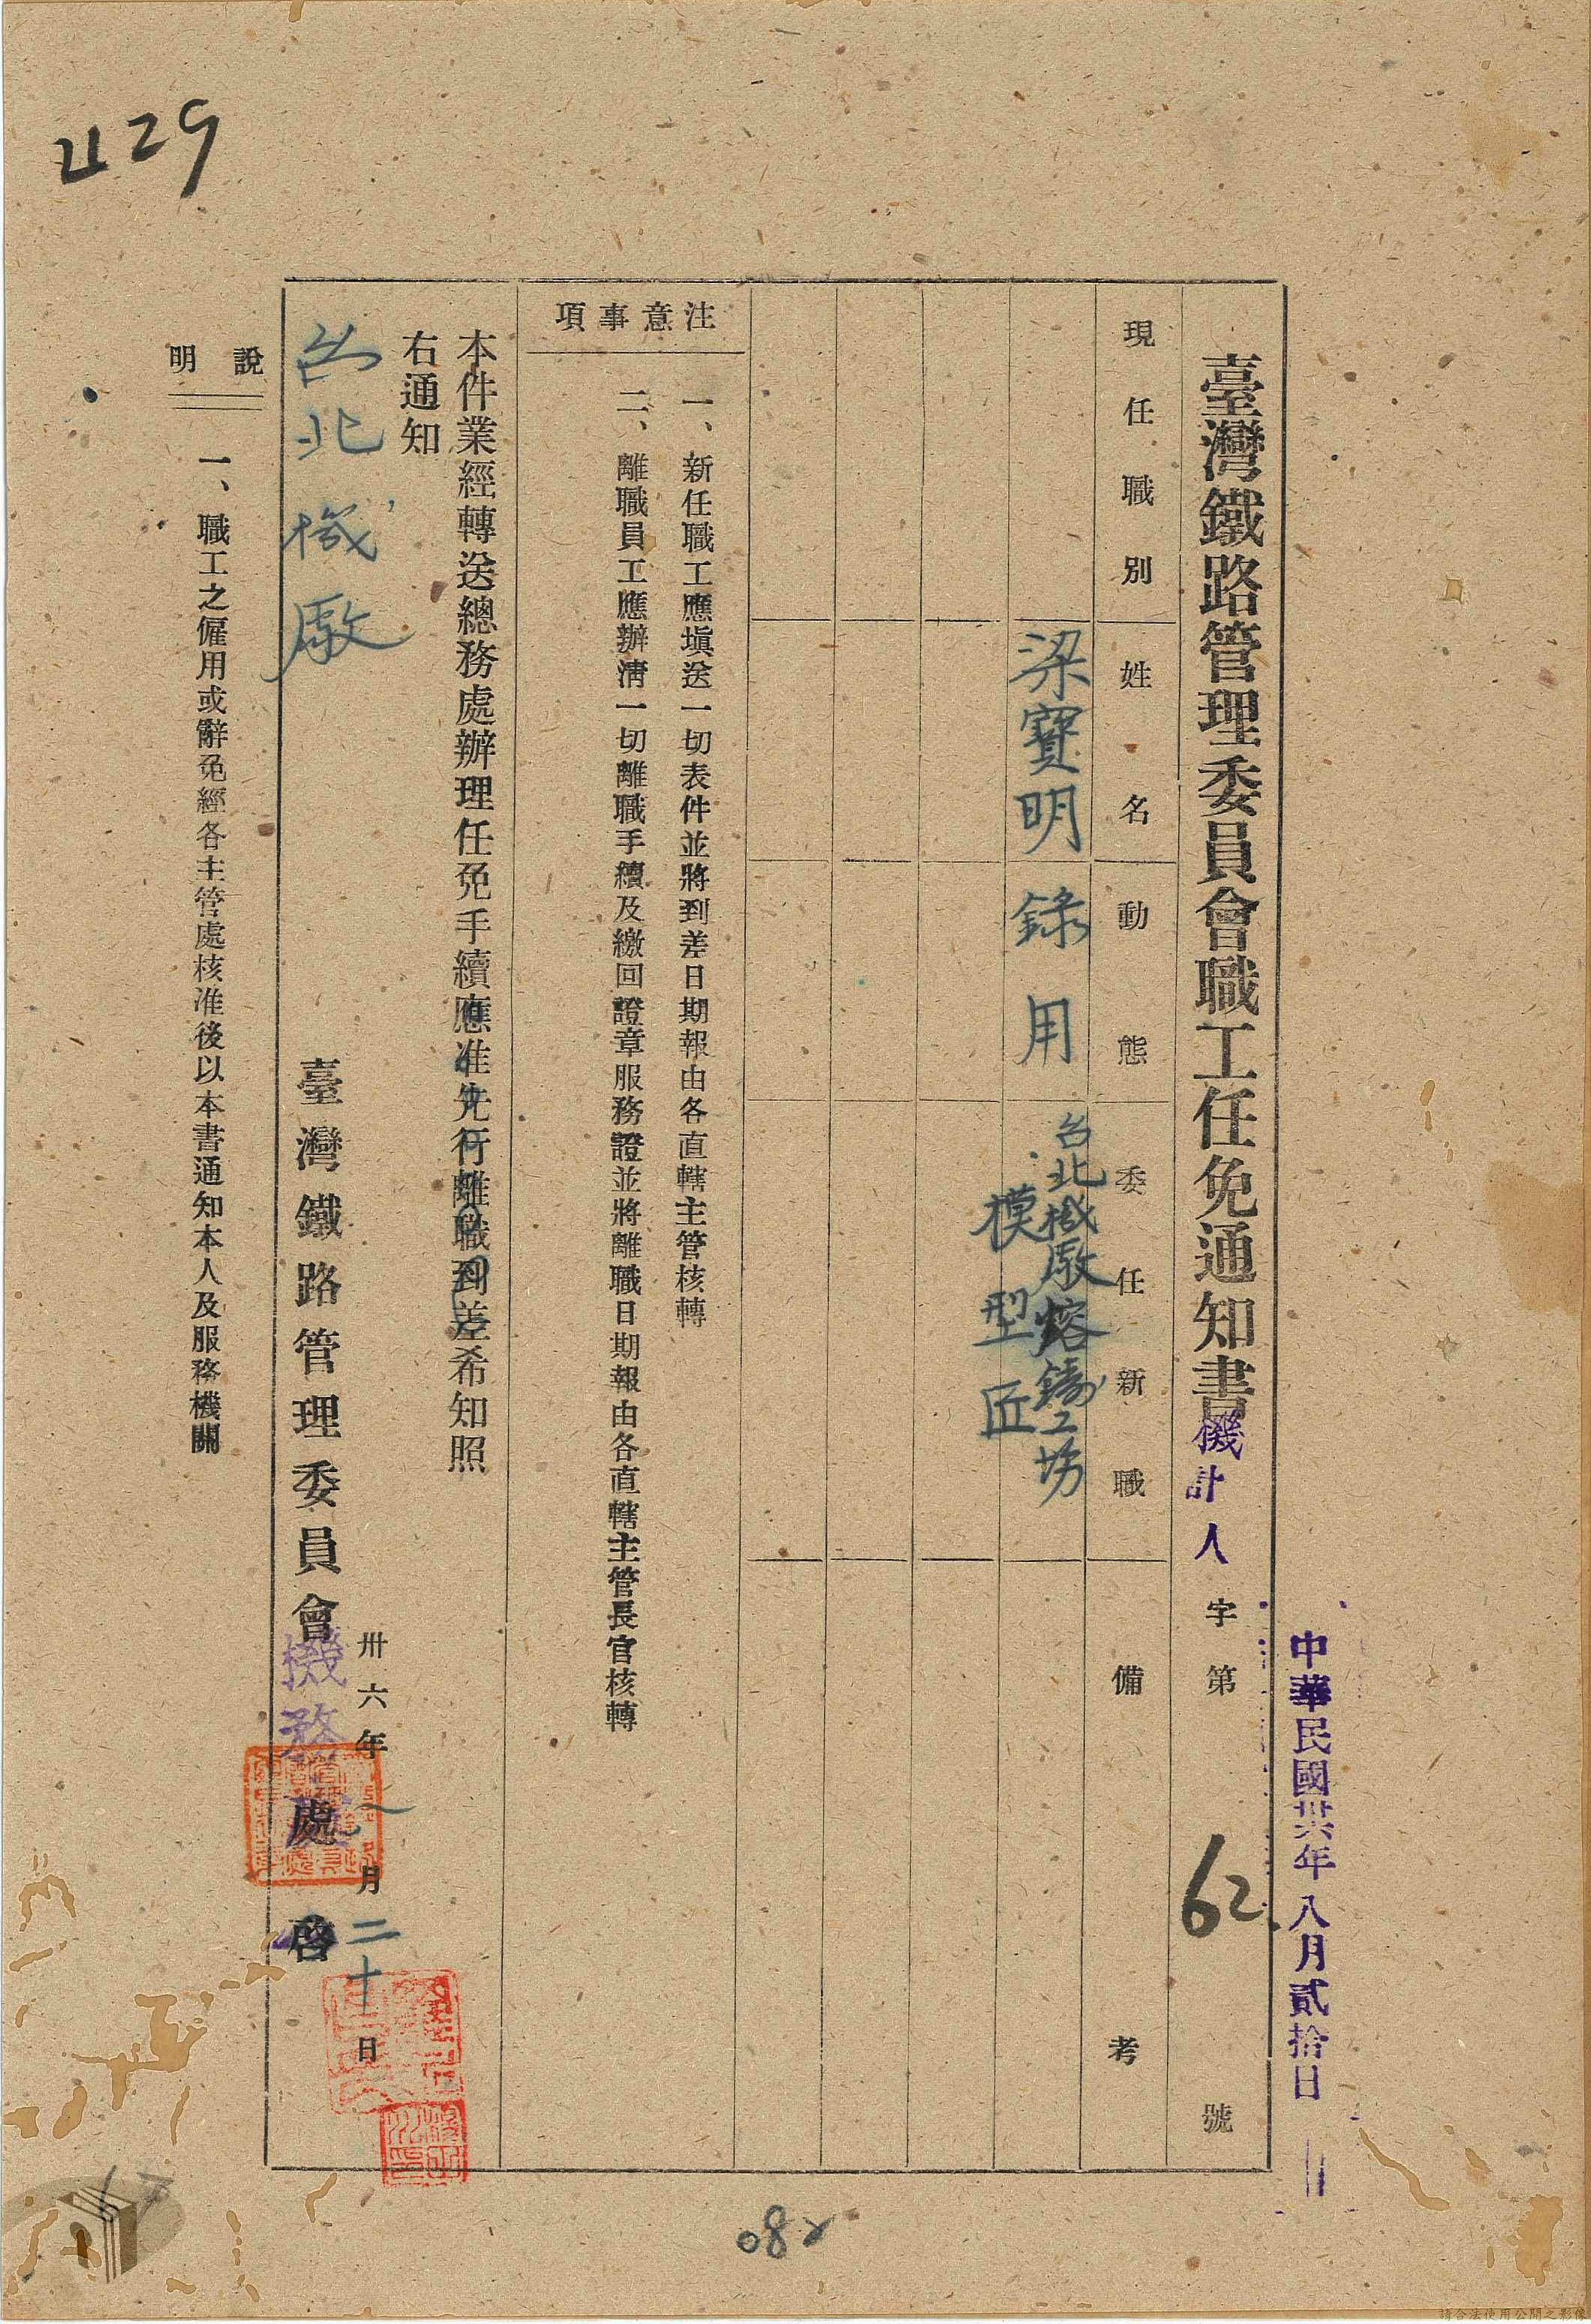 中華民國卅六年八月貳拾日
臺灣鐵路管理委員會職工任免通知書 機計人字第 62 號
現任職別 姓名 動態 委任新職 備考
梁寶明 錄用 台北機廠熔鑄工場
模型匠
注意事項
一、新任職工應塡送一切表件並將到差日期報由各直轄主管核轉
二、離職員工應辦淸一切離職手續及繳回證章服務證並將離職日期報由各直轄主管長官核轉
本件業經轉送總務處辦理任免手續應准先行離職到差希知照
右通知
台北機廠
卅六年 月二十日
臺灣鐵路管理委員會機務處啓
說明
一、職工之僱用或辭免經各主管處核准後以本書通知本人及服務機關
429
請合法使用公開之影像